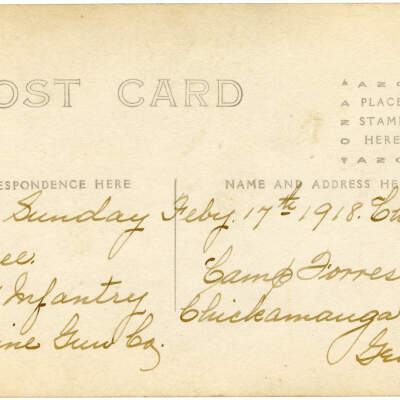 OST CARD
AZO
PLACE
STAMP
HERE
AZO
RESPONDENCE HERE
NAME AND ADDRESS HE
Sunday Feby. 17th 1918.
ee.
Camp Forres
Infantry
Chickamauga
ine Gun Co,
Ge